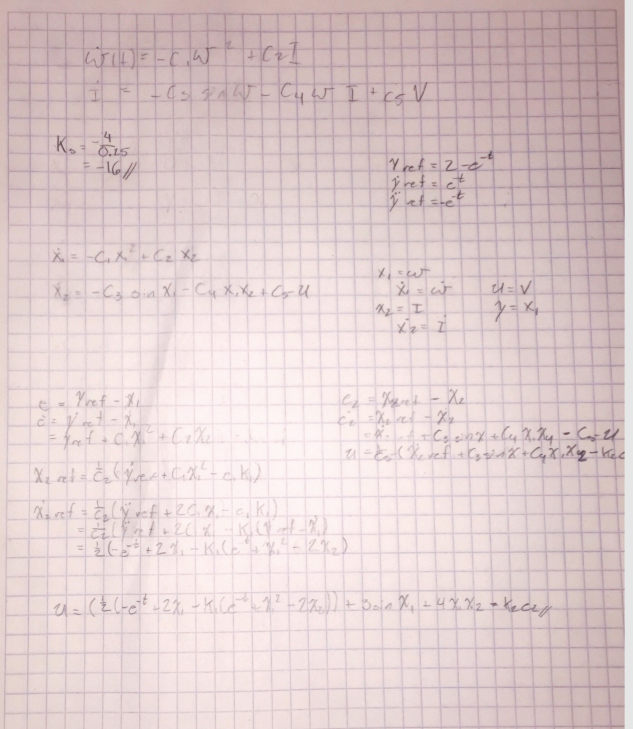 ẇ(t) = -C₁w² + C₂I
İ = -C₃ sin w - C₄ w I + C₅ V
K₃ = -4/0.25
= -16 //
Yref = 2 - e^-t
ẏref = e^-t
ÿref = -e^-t
ẋ₁ = -C₁x₁² + C₂x₂
ẋ₂ = -C₃ sin x₁ - C₄x₁x₂ + C₅u
x₁ = w
ẋ₁ = ẇ
x₂ = I
ẋ₂ = İ
u = V
y = x₁
e = Yref - x₁
ė = ẏref - ẋ₁
= ẏref + C₁x₁² + C₂x₂
x₂ref = 1/C₂ (ẏref + C₁x₁² - e₁K₁)
ẋ₂ref = 1/C₂ (ÿref + 2C₁x₁ - ė₁K₁)
= 1/C₂ (ÿref + 2C₁x₁ - K₁(ẏref - ẋ₁)
= 1/2 (-e^-t + 2x₁ - K₁(e^-t + x₁² - 2x₂)
e₂ = x₂ref - x₂
ė₂ = ẋ₂ref - ẋ₂
= ẋ₂ref + C₃ sin x + C₄x₁x₂ - C₅u
u = (ẋ₂ref + C₃ sin x + C₄x₁x₂ - K₂e
u = (1/2 (-e^-t + 2x₁ - K₁(e^-t + x₁² - 2x₂)) + 3 sin x₁ + 4x₁x₂ + K₂e₂ //